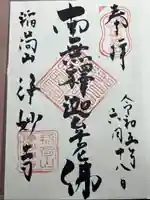 奉拝
令和五年
六月十八日
南無釋迦牟尼佛
稲荷山
浄妙寺